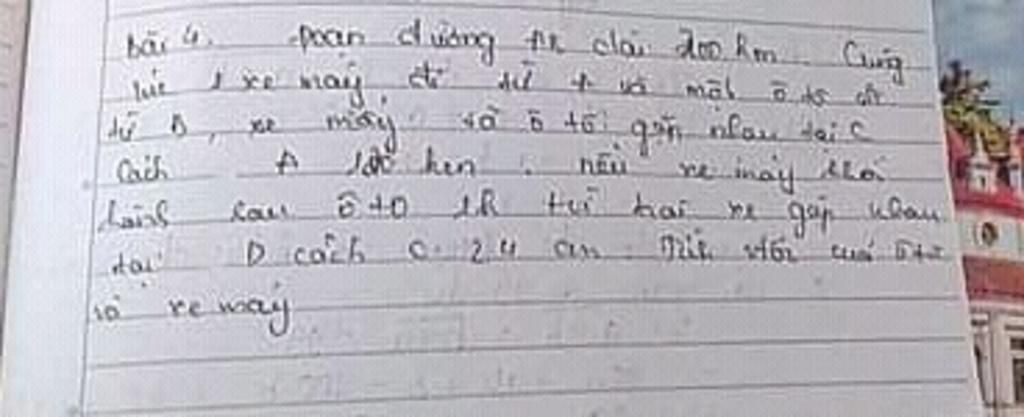 Bài 4. Đoạn đường AB dài 200 km. Cùng
lúc 1 xe máy đi từ A và một ô tô đi
từ B, xe máy và ô tô gặp nhau tại C
Cách A 120 km. nếu xe máy khởi
hành sau ô tô 1h thì hai xe gặp nhau
tại D cách C 24 km. Tính vtốc của ô tô
và xe máy